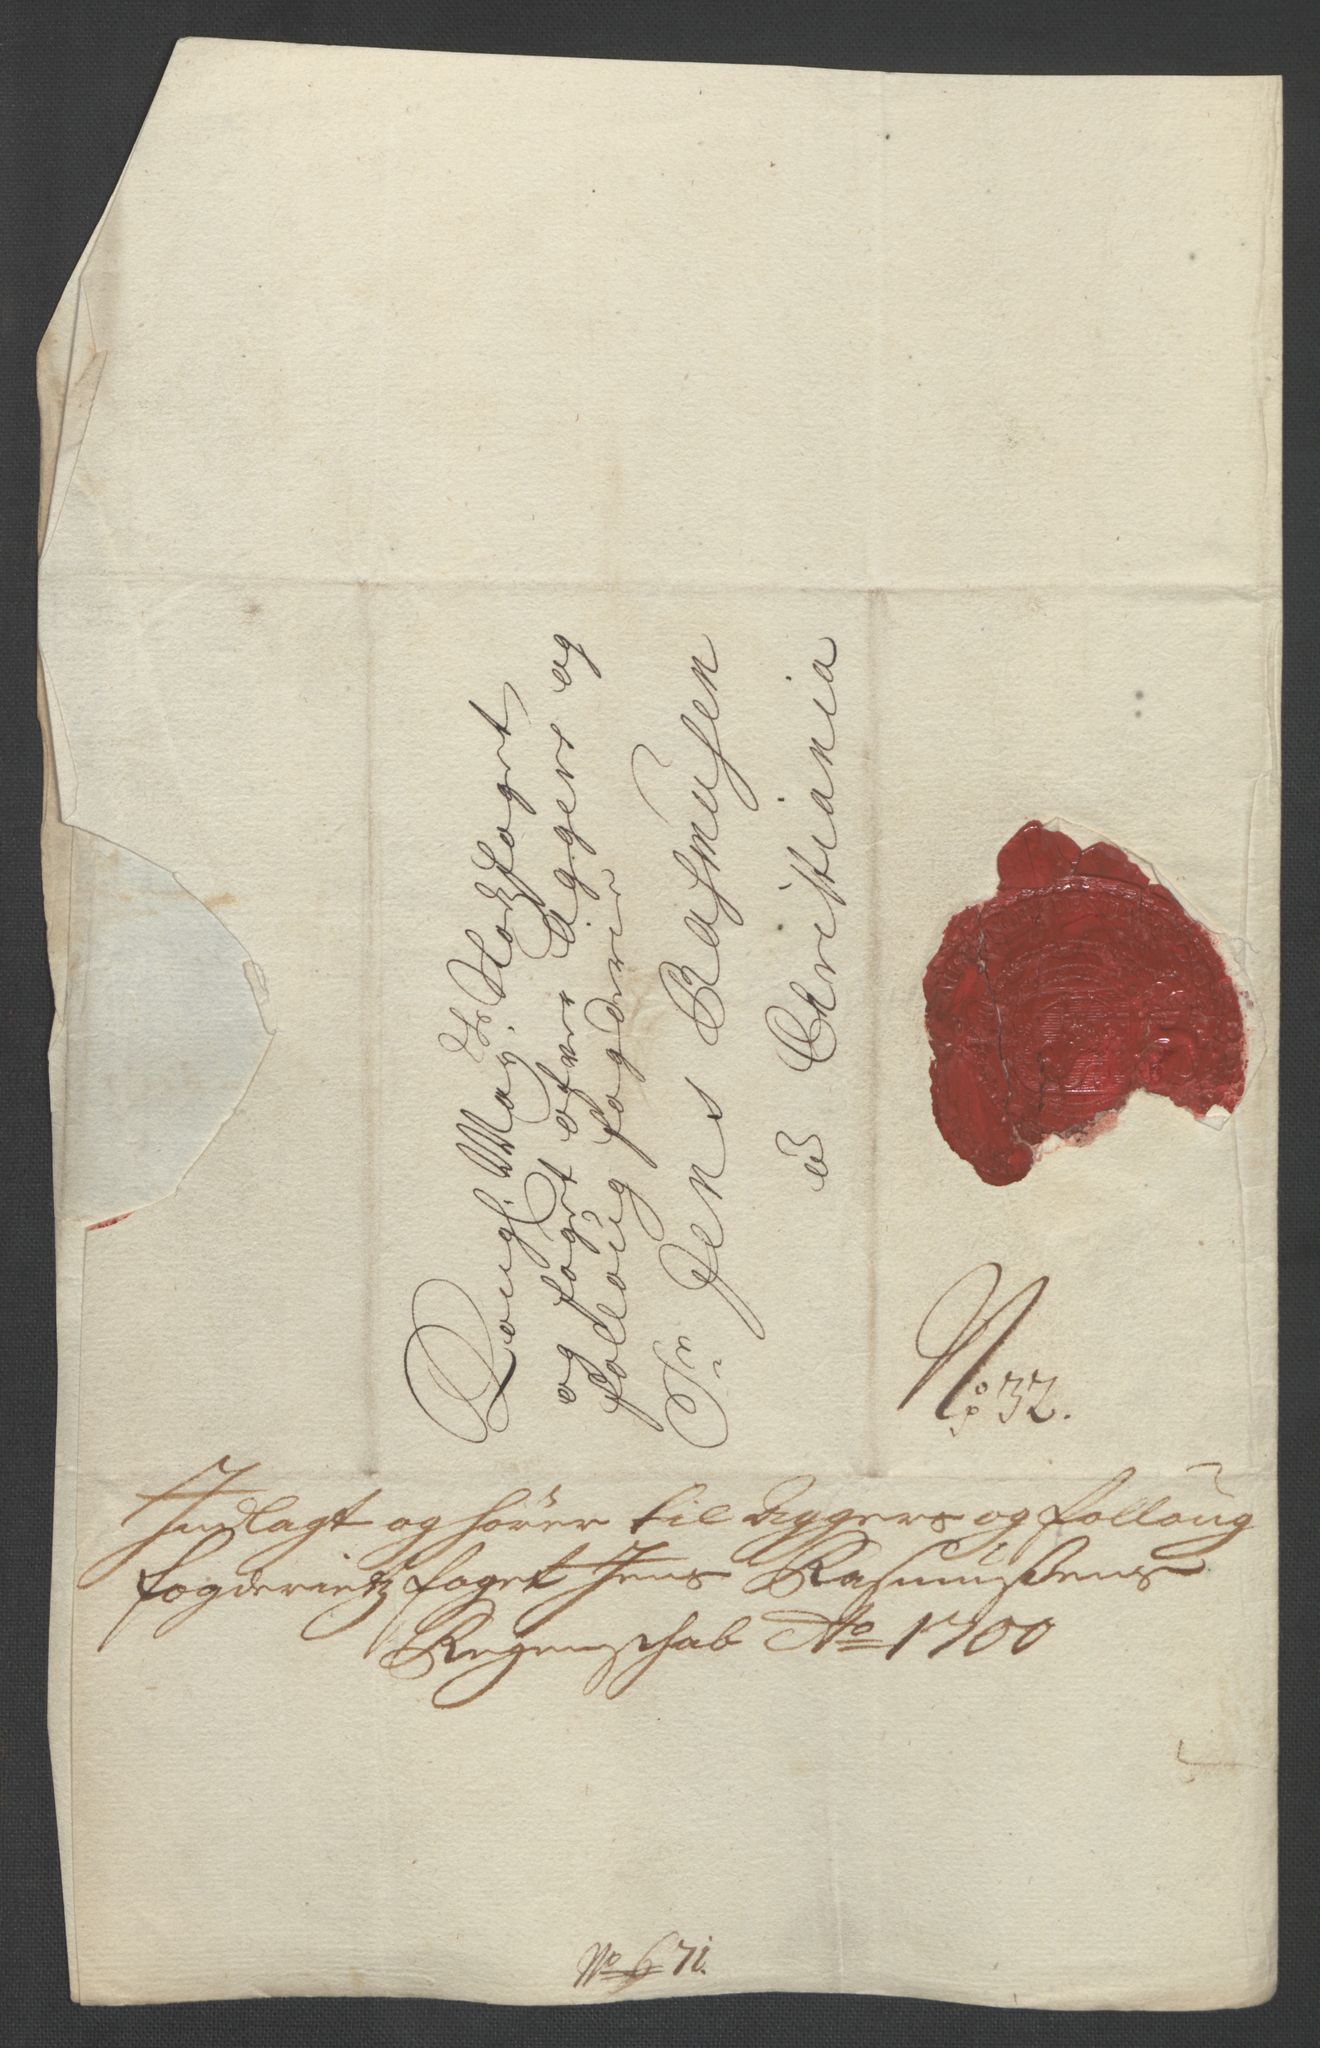 Kongl. May. ds Slotzfoget
og fogt ofver Aggers og
folloug fogderie
Sr. Jens Rasmusen
a Christiania
No: 32.
Indlagt og hörer til Aggers og folloug
fogderietz foget Jens Rasmusens
Regenschab Ao 1700
No 6 71.